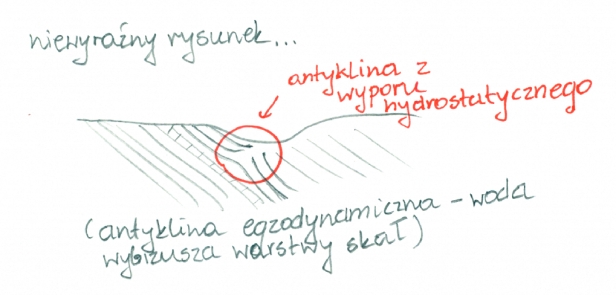 niewyraźny rysunek...
antyklina z
wyporu
hydrostatycznego
(antyklina egzodynamiczna - woda
wybrzusza warstwy skał)